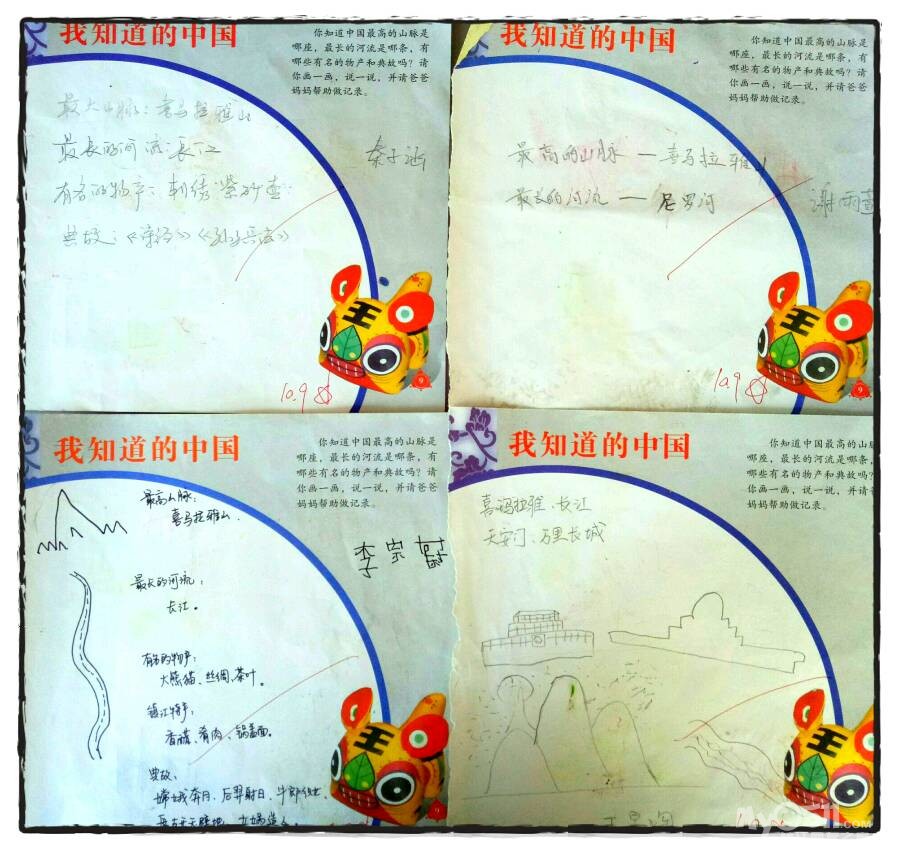 我知道的中国
你知道中国最高的山脉是
哪座，最长的河流是哪条，有
哪些有名的物产和典故吗？请
你画一画，说一说，并请爸爸
妈妈帮助做记录。
最大山脉：喜马拉雅山
最长的河流：长江
有名的物产：刺绣 紫砂壶
典故：
秦子涵
王
10.9
9
我知道的中国
你知道中国最高的山脉是
哪座，最长的河流是哪条，有
哪些有名的物产和典故吗？请
你画一画，说一说，并请爸爸
妈妈帮助做记录。
最高的山脉 — 喜马拉雅山
最长的河流 — 尼罗河
谢雨
王
10.9
9
我知道的中国
你知道中国最高的山脉是
哪座，最长的河流是哪条，有
哪些有名的物产和典故吗？请
你画一画，说一说，并请爸爸
妈妈帮助做记录。
最高山脉：
喜马拉雅山.
李宗
最长的河流：
长江。
有名的物产：
大熊猫、丝绸、茶叶。
镇江特产：
香醋、肴肉、锅盖面。
典故：
嫦娥奔月、后羿射日、牛郎织女、
王
9
我知道的中国
你知道中国最高的山脉是
哪座，最长的河流是哪条，有
哪些有名的物产和典故吗？请
你画一画，说一说，并请爸爸
妈妈帮助做记录。
喜玛拉雅、长江
天安门、万里长城
王